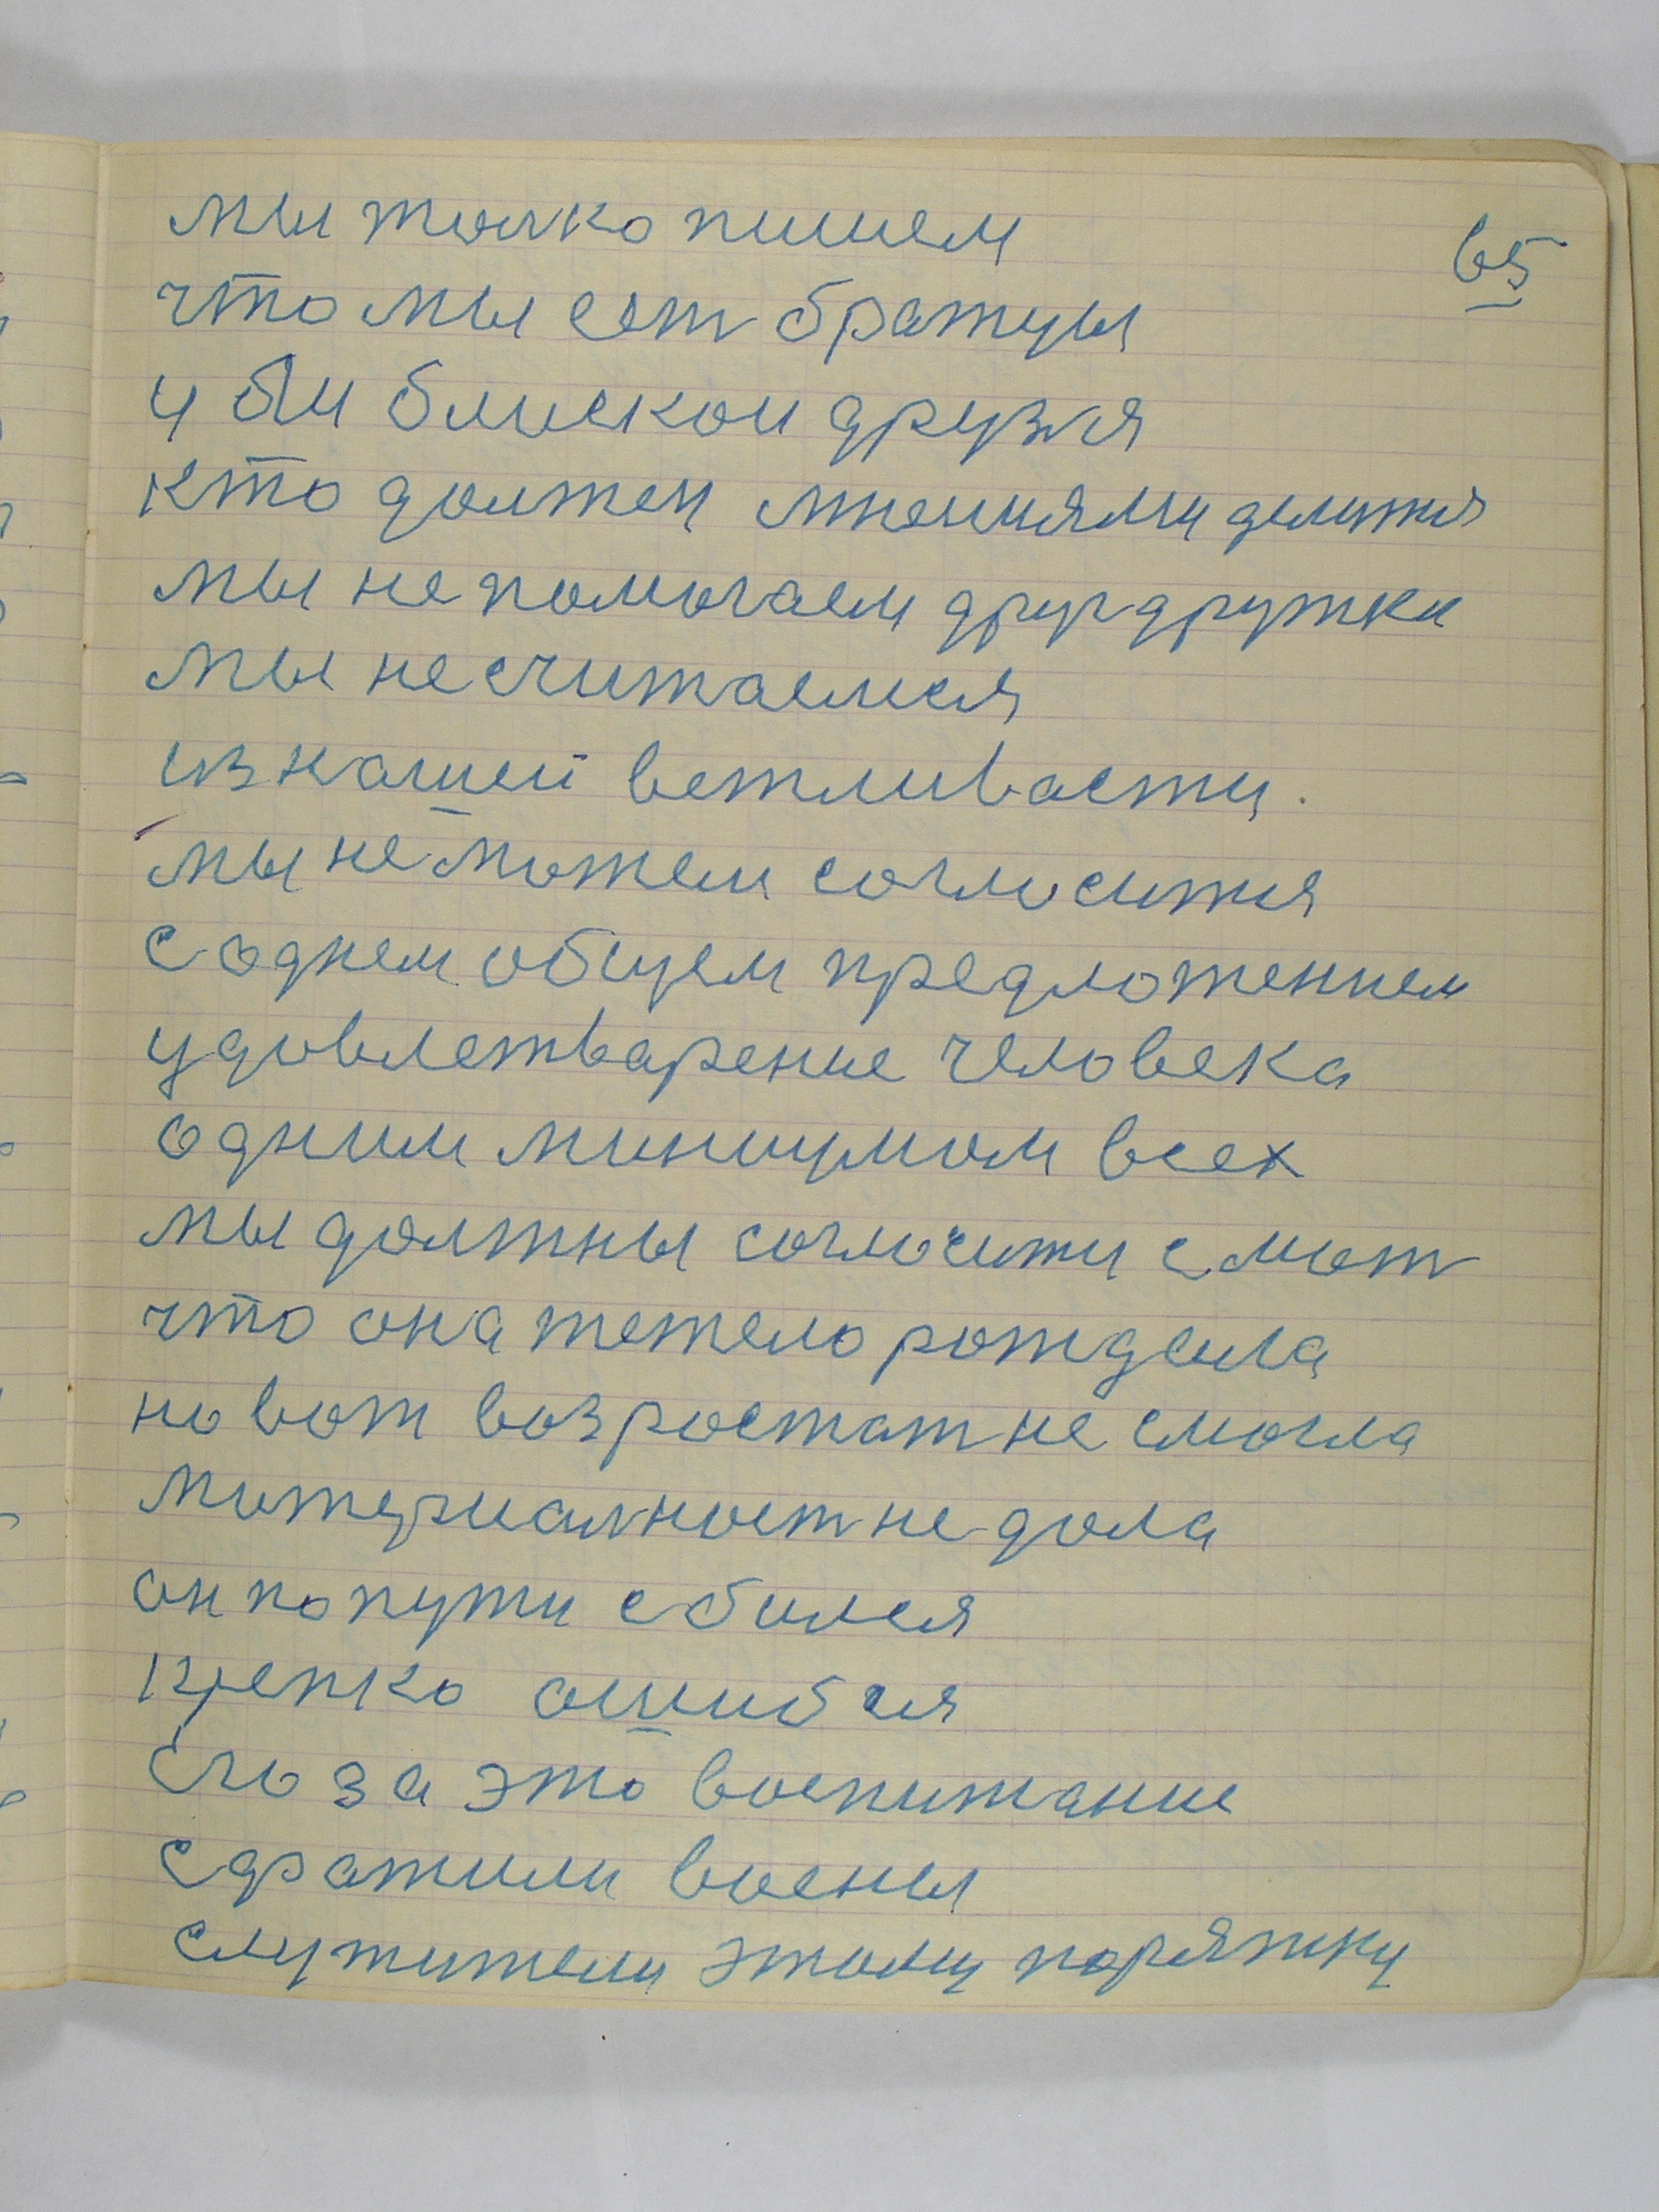 65
мы толко пишем
что мы ест братцы
и бли блискои друзя
кто должен мнениями делится
мы не помогаем друг дружке
мы не считаемся
из нашей вежливасти.
мы не можем согласится
с однем общем предложением
удовлетварение человека
одним минимумом всех
мы должны согласити с мат
что она тежело рождала
но вот возростат не смогла
материалност не дала
он по пути сбился
крепко ошибся
Его за это воспитание
схватили воены
служители этому порятку